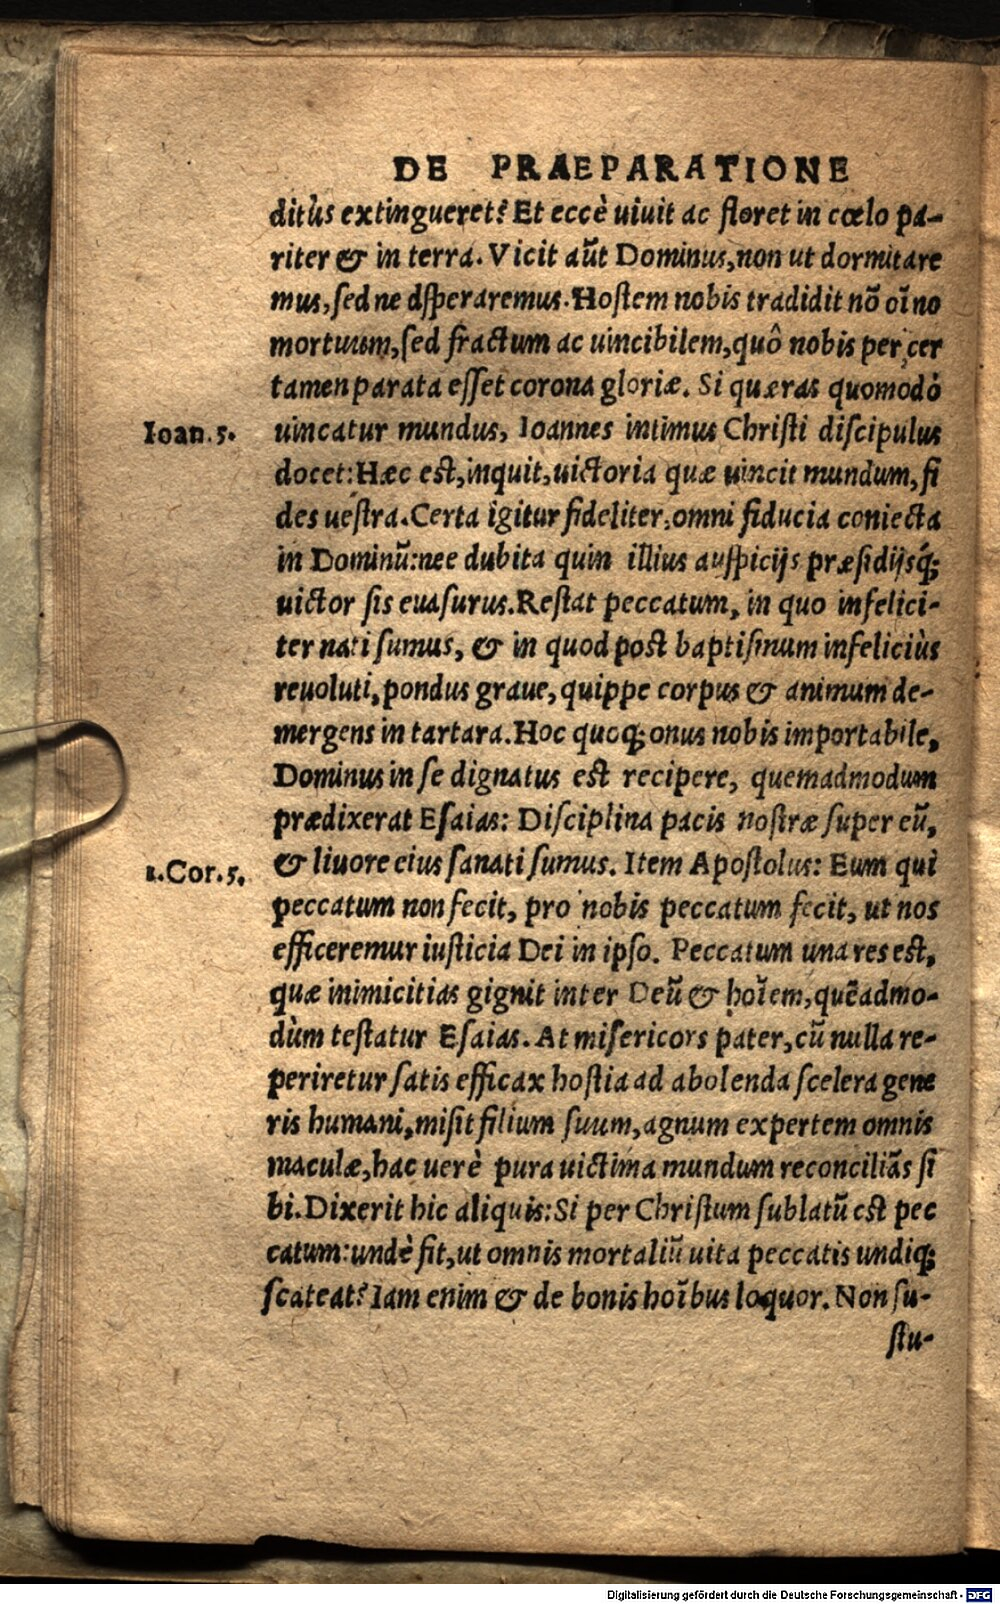 DE PRAEPARATIONE
ditùs extingueret? Et eccè uiuit ac floret in cœlo pa-
riter & in terra. Vicit aũt Dominus, non ut dormitare
mus, sed ne dsperaremus. Hostem nobis tradidit nõ oĩno
mortuum, sed fractum ac uincibilem, quô nobis per cer
tamen parata esset corona gloriæ. Si quæras quomodò
Ioan. 5. uincatur mundus, Ioannes intimus Christi discipulus
docet: Hæc est, inquit, uictoria quæ uincit mundum, fi
des uestra. Certa igitur fideliter, omni fiducia coniecta
in Dominũ: nee dubita quin illius auspicijs præsidijsq́;
uictor sis euasurus. Restat peccatum, in quo infelici-
ter nati sumus, & in quod post baptismum infeliciùs
reuoluti, pondus graue, quippe corpus & animum de-
mergens in tartara. Hoc quoq; onus nobis importabile,
Dominus in se dignatus est recipere, quemadmodum
prædixerat Esaias: Disciplina pacis nostræ super eũ,
1.Cor.5. & liuore eius sanati sumus. Item Apostolus: Eum qui
peccatum non fecit, pro nobis peccatum fecit, ut nos
efficeremur iusticia Dei in ipso. Peccatum una res est,
quæ inimicitias gignit inter Deũ & hoĩem, quẽadmo-
dùm testatur Esaias. At misericors pater, cũ nulla re-
periretur satis efficax hostia ad abolenda scelera gene
ris humani, misit filium suum, agnum expertem omnis
maculæ, hac uerè pura uictima mundum reconciliãs si
bi. Dixerit hic aliquis: Si per Christum sublatũ est pec
catum: undè fit, ut omnis mortaliũ uita peccatis undiq;
scateat? Iam enim & de bonis hoĩbus loquor. Non su-
stu-
Digitalisierung gefördert durch die Deutsche Forschungsgemeinschaft - DFG